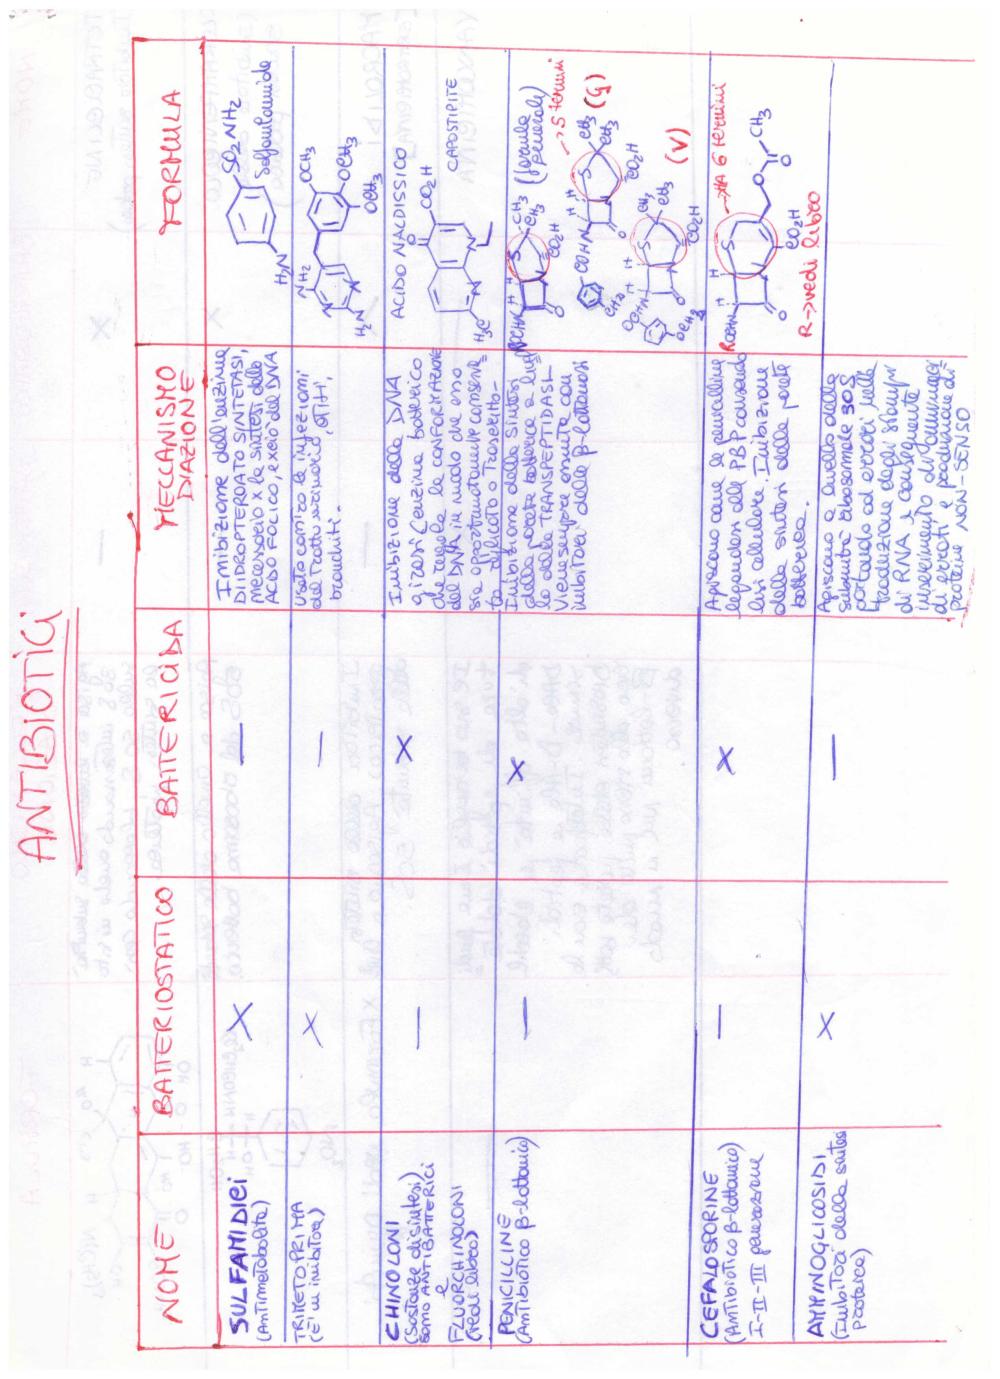 ANTIBIOTICI
NOME
BATTERIOSTATICO
BATTERICIDA
MECCANISMO
DI AZIONE
FORMULA
SULFAMIDICI
(Antimetabolita)
X
—
Inibizione dell'enzima
DIIDROPTEROATO SINTETASI,
necessario x la sintesi dello
ACIDO FOLICO, e xciò del DNA
SO2NH2
H2N
Solfanilamide
TRIMETOPRIMA
(È un inibitore)
X
—
Usato contro le infezioni
del tratto urinario, otiti,
bronchiti-
NH2
N
N
H2N
OCH3
OCH3
OCH3
CHINOLONI
(Sostanze di sintesi)
sono ANTIBATTERICI
e
FLUORCHINOLONI
(vedi libro)
—
X
Inibizione della DNA
girasi (enzima batterico
che regola la CONFORMAZIONE
del DNA in modo che esso
sia opportunamente conserva=
to, replicato o trascritto-
ACIDO NALDISSICO
O
CO2H
H3C
N
N
CAPOSTIPITE
PENICILLINE
(Antibiotico β-lattamico)
—
X
Inibizione della sintesi
della parete batterica a livel
lo della TRANSPEPTIDASI.
Viene sempre unita con
inibitori delle β-lattamasi
ROCHN
H H
S
CH3
CH3
CO2H
O
N
(formula
generale)
→ 5 termini
COHN
H H
S
CH3
CH3
CO2H
O
(G)
OCHN
H H
S
CH3
CH3
CO2H
O
OCH3
(V)
CEFALOSPORINE
(Antibiotico β-lattamico)
I-II-III generazione
—
X
Agiscono come le penicilline
legandosi alle PBP causando
lisi cellulare. Inibizione
della sintesi della parete
batterica.
ROCHN
H H
S
→ HA 6 termini
O
N
O
CH3
O
CO2H
R → vedi libro
AMMINOGLICOSIDI
(Inibitori della sintesi
proteica)
X
—
Agiscono a livello della
subunità ribosomiale 30S
portando ad errori nella
traduzione degli stampi
di RNA e conseguente
inserimento di amminoaci=
di errati e produzione di
proteine NON-SENSO